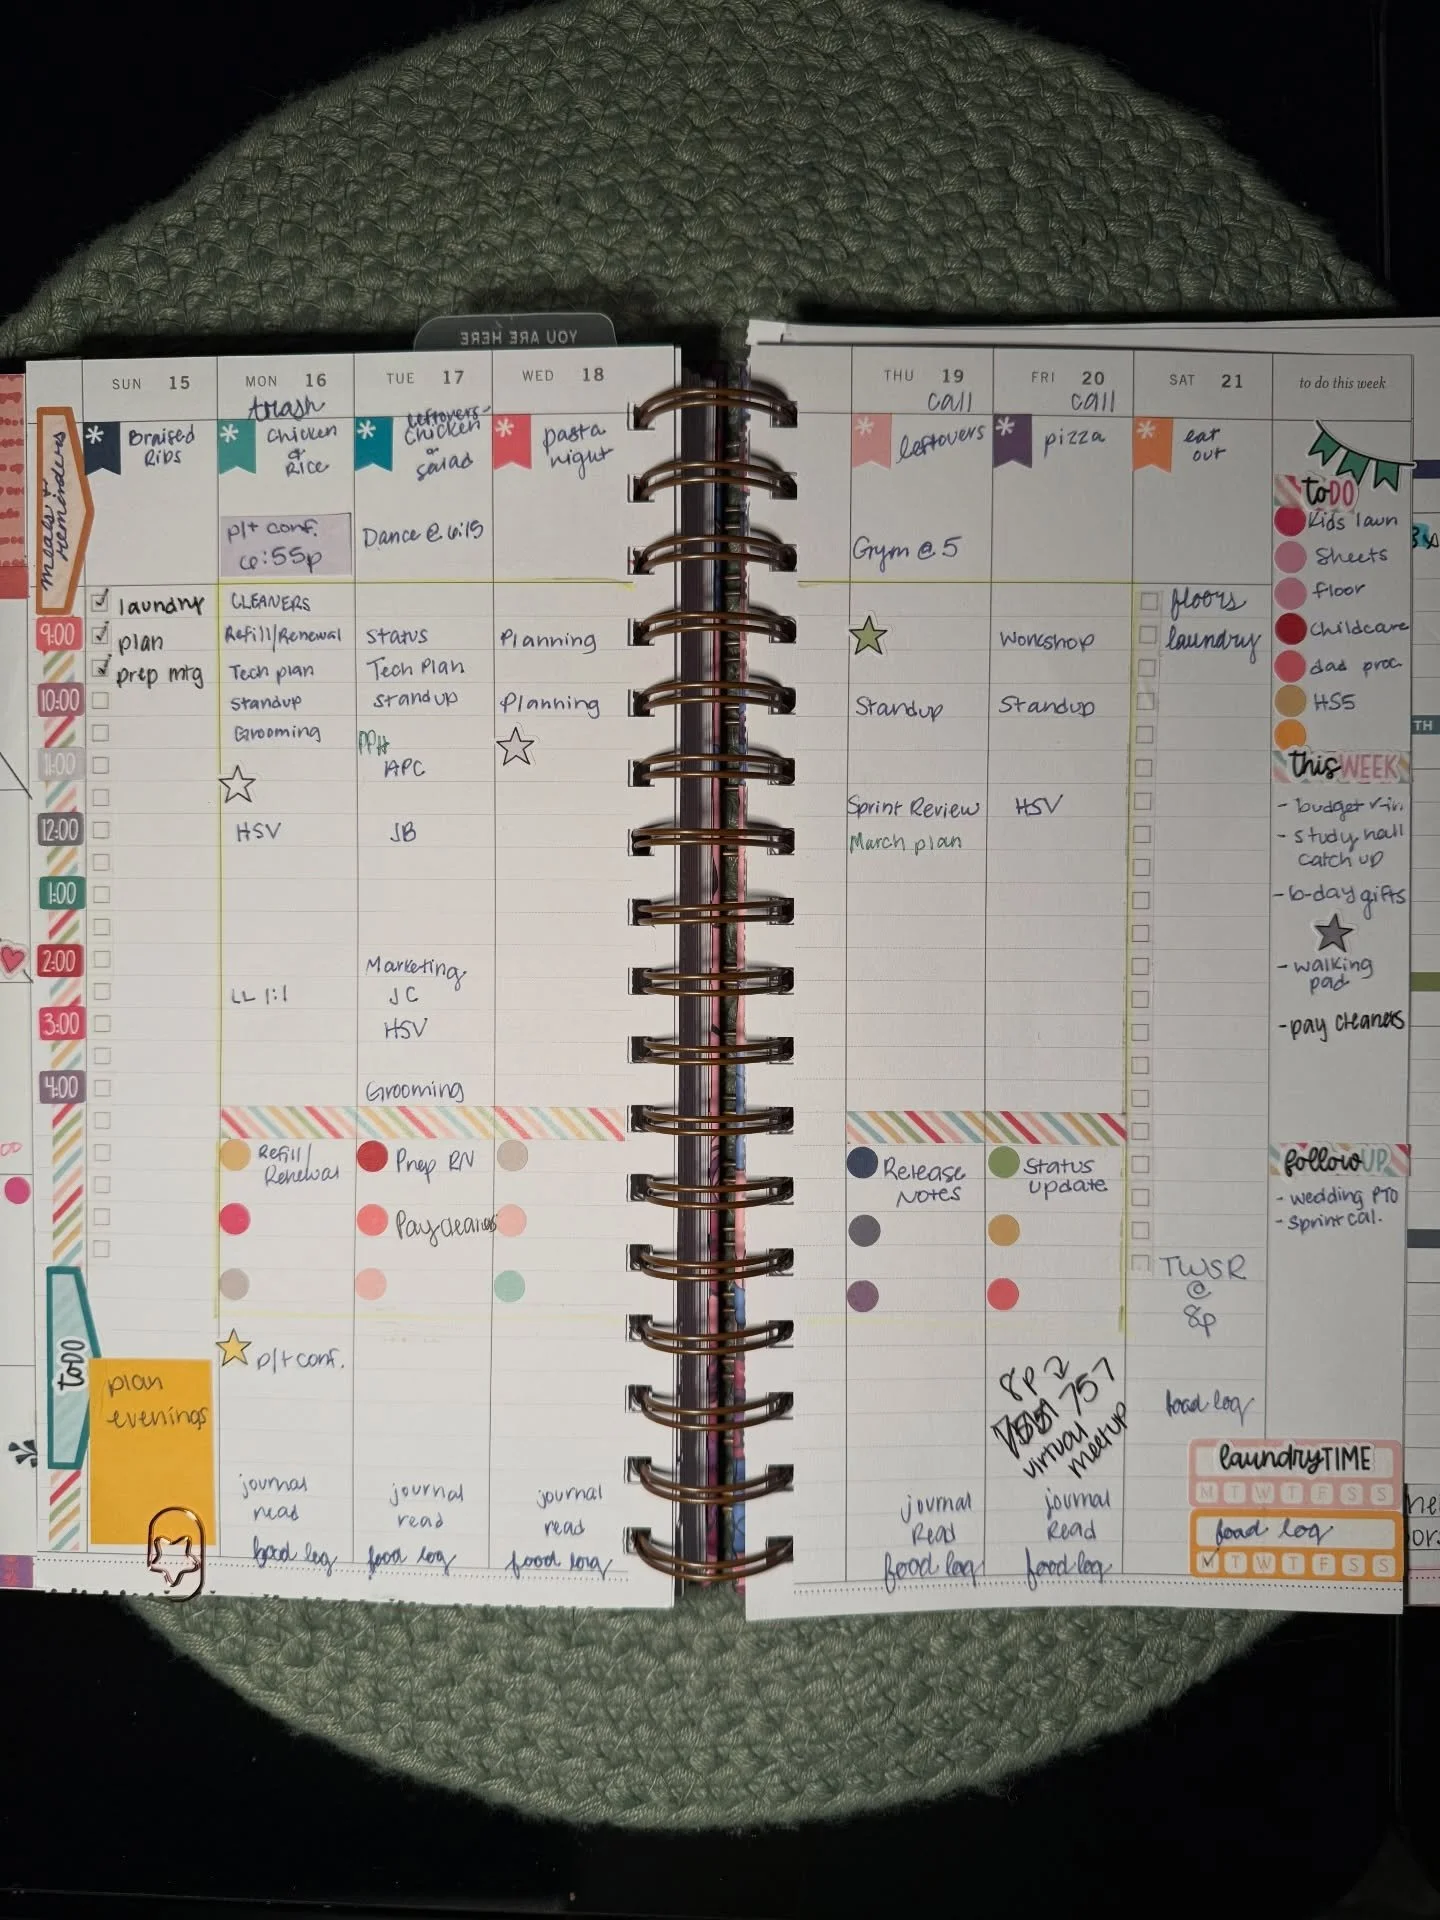 YOU ARE HERE
SUN 15
MON 16
TUE 17
WED 18
THU 19
FRI 20
SAT 21
to do this week
trash
call
call
meals +
reminders
Braised
Ribs
chicken
&
Rice
leftovers-
chicken
salad
pasta
night
leftovers
pizza
eat
out
p/t conf.
6:55p
Dance @ 6:15
Gym @ 5
9:00
10:00
11:00
12:00
1:00
2:00
3:00
4:00
toDO
laundry
plan
prep mtg
plan
evenings
CLEANERS
Refill/Renewal
Tech plan
Standup
Grooming
HSV
LL 1:1
Refill/
Renewal
p/t conf.
journal
read
food log
Status
Tech Plan
Standup
PPH
APC
JB
Marketing
JC
HSV
Grooming
Prep RN
Pay cleaners
journal
read
food log
Planning
Planning
journal
read
food log
Standup
Sprint Review
March plan
Release
Notes
journal
Read
food log
Workshop
Standup
HSV
Status
update
8p
757
virtual
meetup
journal
Read
food log
floors
laundry
TWSR
@
8p
food log
toDO
Kids laun
Sheets
floor
Childcare
dad proc
HS5
thisWEEK
- budget
- study hall
catch up
- b-day gifts
- walking
pad
- pay cleaners
followUP
- wedding PTO
- Sprint cal.
laundryTIME
M T W T F S S
food log
M T W T F S S
TH